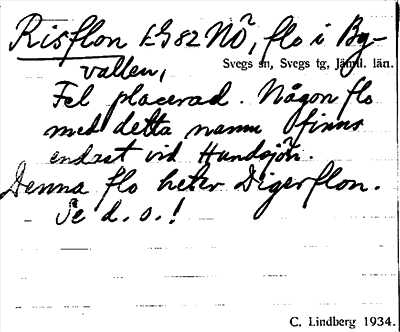 Risflon EG82 NÖ, flo i By-
vallen,
Svegs sn, Svegs tg, Jämtl. län.
Fel placerad. Någon flo
med detta namn finns
endast vid Handsjön.
Denna flo heter Digerflon.
Se d. o.!
C. Lindberg 1934.